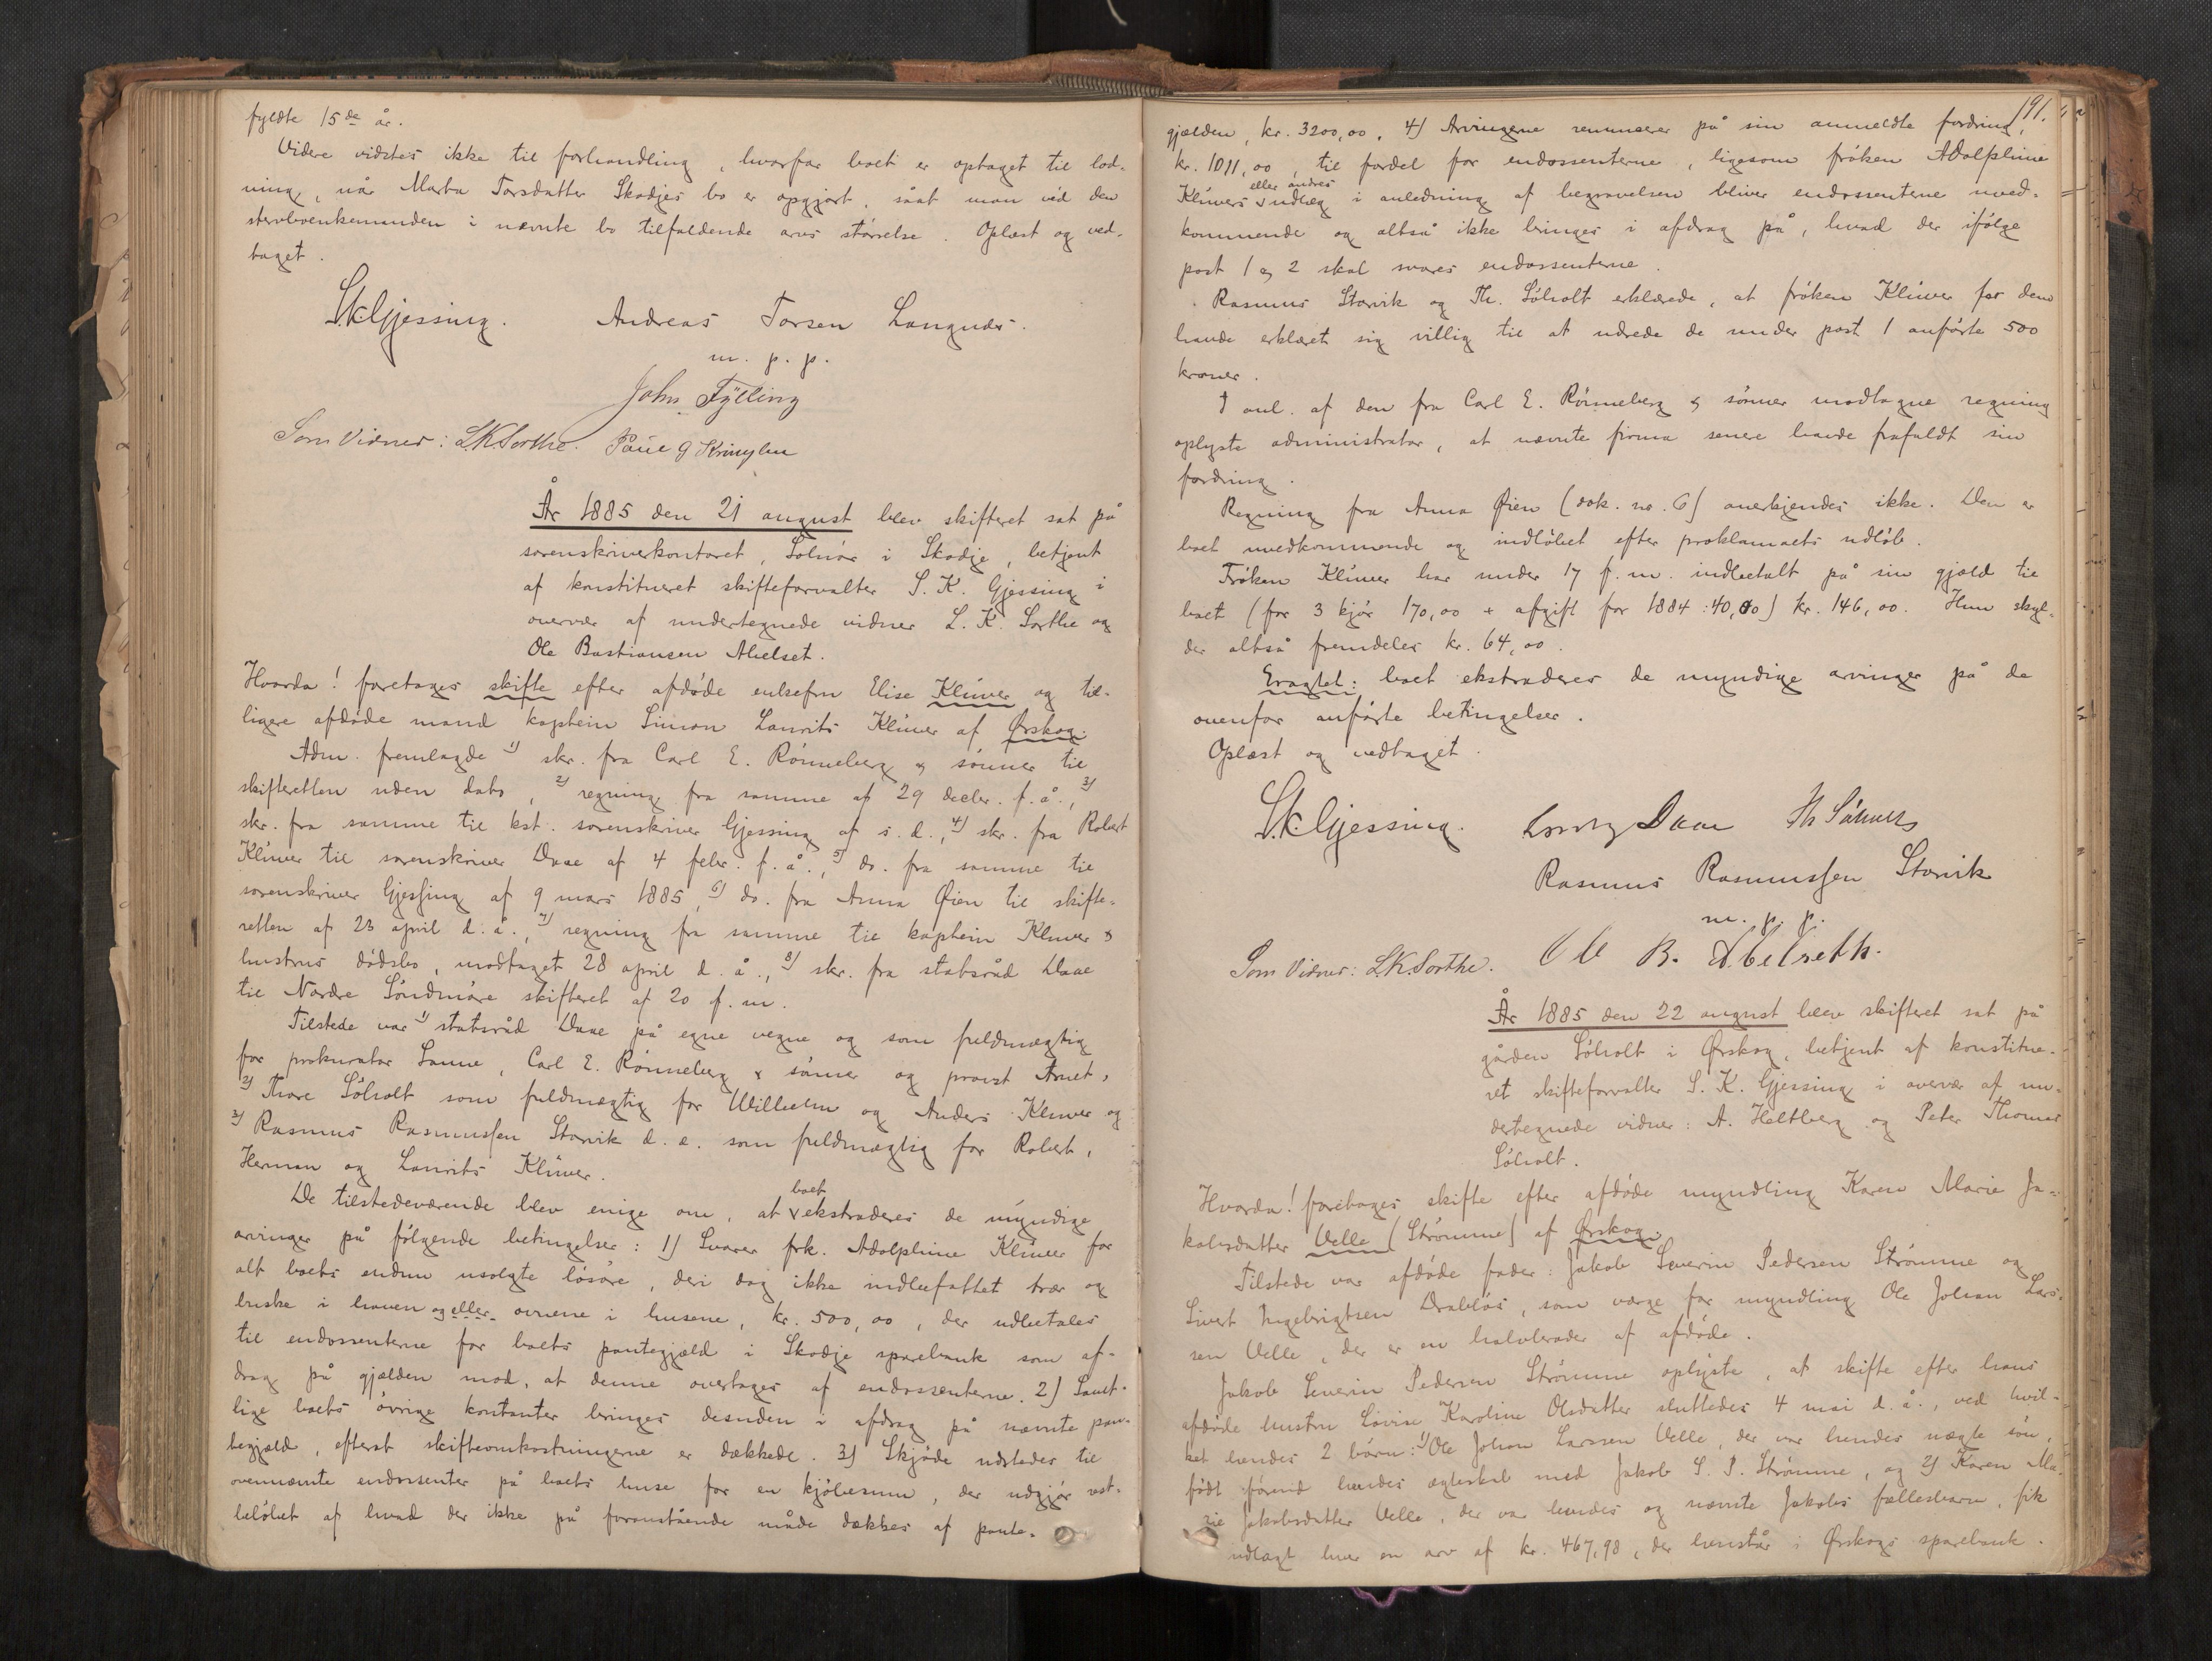 fyldte 15de år.
Videre vidstes ikke til forhandling, hvorfor boet er optaget til lod-
ning, når Marta Torsdatter Skodjes bo er opgjort, såat man véd den
stervboenkemanden i nævnte bo tilfaldende arvs størrelse. Oplæst og ved-
taget.
S.K. Gjessing. Andreas Torsen Langnes.
m. p. p.
John Fylling
Som Vidner: L.K. Sorthe. Paul G
År 1885 den 21 august blev skifteret sat på
sorenskriverkontoret, Solnør i Skodje, betjent
af konstitueret skifteforvalter S. K. Gjessing i
overvær af undertegnede vidner L. K. Sorthe og
Ole Bastiansen Abelset.
Hvorda! foretoges skifte efter afdøde enkefru Elise Klüver og tid-
ligere afdøde mand kaptein Simon Laurits Klüver af Ørskog.
Adm. fremlagde 1) skr. fra Carl E. Rønneberg & sønner til
skifteretten uden dato, 2) regning fra samme af 29 decbr. f. å., 3)
skr. fra samme til kst. sorenskriver Gjessing af s. d., 4) skr. fra Robert
Klüver til sorenskriver Daae af 4 febr. f. å., 5) do. fra samme til
sorenskriver Gjessing af 9 mars 1885, 6) do. fra Anna Øien til skifte-
retten af 23 april d. å., 7) regning fra samme til kaptein Klüver &
hustrus dødsbo, modtaget 28 april d. å., 8) skr. fra statsråd Daae
til Nordre Søndmøre skifteret af 20 f. m.
Tilstede var 1) statsråd Daae på egne vegne og som fuldmægtig
for prokurator Sanne, Carl E. Rønneberg & sønner og provst Arnet,
2) Thore Søholt som fuldmægtig for Wilhelm og Anders Klüver og
3) Rasmus Rasmussen Storvik d. e. som fuldmægtig for Robert,
Herman og Laurits Klüver.
De tilstedeværende blev enige om, at boet ekstraderes de myndige
arvinger på følgende betingelser: 1) Svarer frk. Adolphine Klüver for
alt boets endnu usolgte løsøre, deri dog ikke indbefattet trær og
buske i haven og eller ovnene i husene, kr. 500,00, der udbetales
til endossenterne for boets pantegjæld i Skodje sparebank som af-
drag på gjælden mod, at denne overtages af endossenterne. 2) Samt-
lige boets øvrige kontanter bringes desuden i afdrag på nævnte pan-
tegjæld, efterat skifteomkostningerne er dækkede. 3) Skjøde udstedes til
ovennævnte endossenter på boets huse for en kjøbesum, der udgjør rest-
beløbet af hvad der ikke på foranstående måde dækkes af pante-
191.
gjælden, kr. 3200,00. 4) Arvingerne renuncerer på sin anmeldte fordring,
kr. 1011,00, til fordel for endossenterne, ligesom frøken Adolphine
Klüvers eller andres Indlæg i anledning af begravelsen bliver endossenterne uved-
kommende og altså ikke bringes i afdrag på, hvad der ifølge
post 1 og 2 skal svares endossenterne.
Rasmus Storvik og Th. Søholt erklærede, at frøken Klüver for dem
havde erklæret sig villig til at udrede de under post 1 anførte 500
kroner.
I anl. af den fra Carl E. Rønneberg & sønner modtagne regning
oplyste administrator, at nævnte firma senere havde frafaldt sin
fordring.
Regning fra Anna Øien (dok. nr. 6) anerkjendes ikke. Den er
boet uvedkommende og indløbet efter proklamaets udløb.
Frøken Klüver har under 17 f. m. indbetalt på sin gjæld til
boet (for 3 kjør 170,00 + afgift for 1884: 40,00) kr. 146,00. Hun skyl-
der altså fremdeles kr. 64,00.
Eragtet: boet ekstraderes de myndige arvinger på de
ovenfor anførte betingelser.
Oplæst og vedtaget.
S.K. Gjessing. Daae Th Søholt
Rasmus Rasmussen Storvik
m. p. p.
Som Vidner: L.K. Sorthe. Ole B. Abelseth.
År 1885 den 22 august blev skifteret sat på
gården Søholt i Ørskog, betjent af konstitue-
ret skifteforvalter S. K. Gjessing i overvær af un-
dertegnede vidner: A. Holtberg og Peter Thomas
Søholt.
Hvorda! foretoges skifte efter afdøde myndling Karen Marie Ja-
kobsdatter Velle (Strømme) af Ørskog.
Tilstede var afdødes fader: Jakob Severin Pedersen Strømme og
Sivert Ingebrigtsen Drabløs, som værge for myndling Ole Johan Lars-
sen Velle, der er en halvbroder af afdøde.
Jakob Severin Pedersen Strømme oplyste, at skifte efter hans
afdøde hustru Lovise Karoline Olsdatter sluttedes 4 mai d. å., ved hvil-
ket hendes 2 børn: 1) Ole Johan Larssen Velle, der var hendes uægte søn,
født forud hendes ægteskab med Jakob S. P. Strømme, og 2) Karen Ma-
rie Jakobsdatter Velle, der var hendes og nævnte Jakobs fællesbarn, fik
udlagt hver en arv af kr. 467,98, der henstår i Ørskogs sparebank.